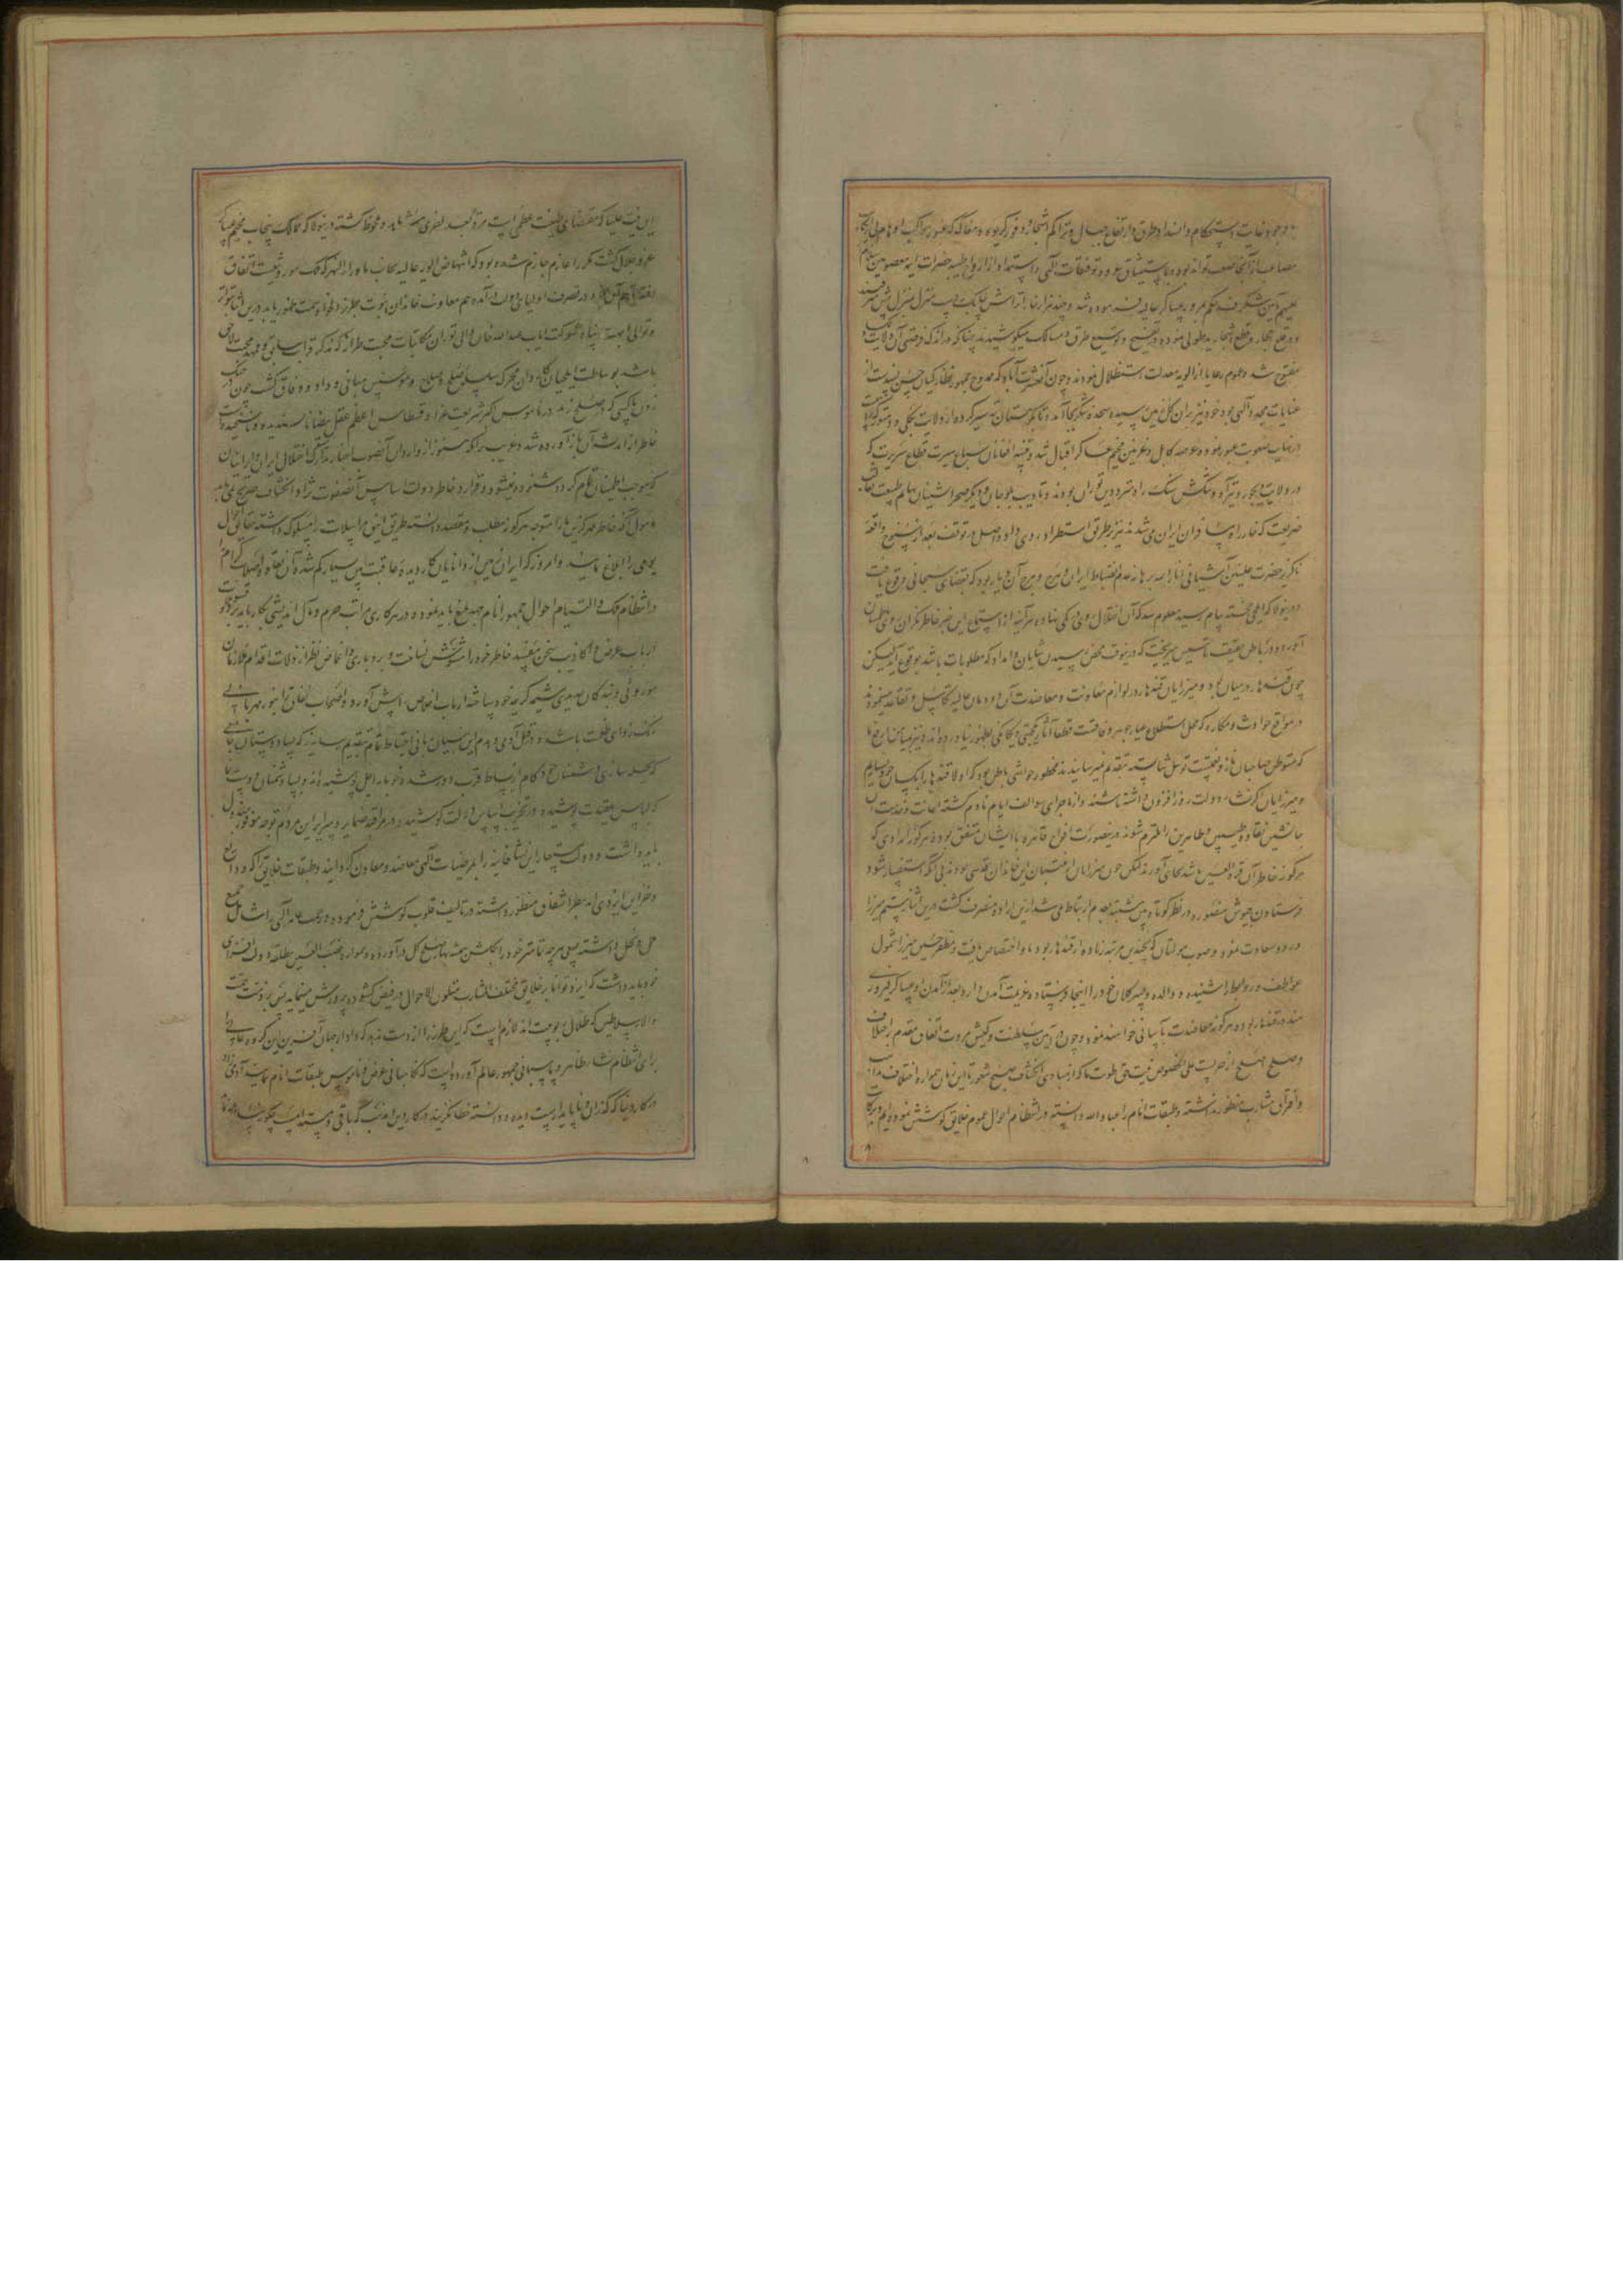 و در جودغایت استحکام و انسداد طرق و ارتفاع جبال و تراکم اشجار و وفور کریوه و مغاک که عبور مواکب اوهام
مصاعب از آنجا صعب تواند بود و باستیثاق توفیقات الهی و استمداد از ارواح طیبه حضرات ایمه معصومین
علیهم شکرف حکم عبور عساکر عالیه فرموده شد و چند هزار خارا تراش چابک دست منزل بمنزل پیش پیش
و در قلع احجار و قطع اشجار ید طولی نموده در تفسیح و توسیع طرق و مسالک میکوشیدند چنانکه در اندک فرصتی آن ولایت
مفتوح شد و عموم رعایا از الویه معدلت استظلال نمودند و چون آنعشرت آباد که ممدوح جمهور نظارکیان حسن پسندست از
عنایات مجدده الهی بود خود نیز بران گل زمین رسیده سجده شکر بجا آمد و تا کوهستان تبت سیر کرده از ولایت پکلی و دمتور که راهی
در نهایت صعوبت عبور نموده عرصه کابل و غزنین مخیم عساکر اقبال شد و تنبیه افغانان سباع سیرت قطاع سریرت که
در ولایت بجور و تیراه و بنگش سنک راه مترددین توران بودند و تادیب بلوچان و دیگر صحرا نشینان بهایم طبیعت
صریعت که خار راه مسافران ایران می شدند نیز بطریق استطراد روی داد و اصل در توقف بعد از سنوح واقعه
ناگزیر حضرت علیین آشیانی انارالله برهانه عدم انضباط ایران و هرج و مرج آن دیار بود که بقضای سبحانی وقوع یافت
و درینولا که ایلچی خجسته پیام رسید معلوم شد که آن اختلال روی بکمی نهاده هر آینه از استماع این خبر خاطر نگران روی باطمینان
آورد و در باطن حقیقت تاسیس میریخت که درینوقت محض پرسیدن شایان و امداد که مطلوبات باشد بوقوع آید لیکن
چون قندهار در میان بود و میرزایان قندهار در لوازم معاونت و معاضدت آن دودمان عالیه تکاسل و تقاعد مینمودند
در مواقع حوادث و مکاره که محل استطلاع عیار جوهر وفاقست قطعا آثار یکجهتی و یگانگی بظهور نیاوردند
که مستوطن صاحبان ناز و نعیمست توسل شایسته بتقدیم نمیرسانیدند مخطور حواشی باطن بود که اولا قندهار را بکسان خود بسپاریم
و میرزایان اگر نشاء دولت روزافزون داشته باشند و از ماجرای سوالف ایام نادم گشته اعانت و خدمت آن
جانشین نقاوه طیبین و طاهرین را ملتزم شوند درینصورت افواج قاهره با ایشان متفق بوده هرگونه امدادی که
مرکوز خاطر آن قرة العین باشد بجای آورند لیکن چون میرزایان از منتسبان این خاندان قدسی بودند بی آنکه استفسار شود
فرستادن جیوش منصوره در نظر کوتاه بین مشتبه بعدم ارتباط می شد ازین اراده منصرف گشت درین اثنا رستم میرزا
در دو سعادت نمود و صوبه مولتان که بچندین مرتبه زیاده از قندهار بود باو اختصاص یافت و مظفر حسین میرزا شمول
عواطف و روابط را شنیده والده و پسر کلان خود را اینجا فرستاده عزیمت آمدن دارد بعد از آمدن او عساکر فیروزی
مند در قندهار بوده هرگونه معاضدت بآسانی خواهند نمود و چون در آیین سلطنت و کیش مروت اتفاق مقدم بر اختلاف
و صلح اصلح از حربست علی الخصوص نیت حق طویت ما که از مبادی انکشاف صبح شعور تا این زمان همواره اختلاف مذاهب
و افتراق مشارب منظور نداشته و طبقات انام را عبادالله دانسته در انتظام احوال عموم خلایق کوشش نموده ایم و برکات
این نیت علیا که مقتضای طینت عظمی است مرة بعد اخری مشاهد و ملحوظ گشته درینولا که ممالک پنجاب مخیم عساکر
عز و جلال گشت مکررا عازم جازم شده بود که انتهاض الویه عالیه بجانب ماوراءالنهر که ملک موروثیست اتفاق
افتد تا هم آن در تصرف اولیای دولت درآمده هم معاونت خاندان نبوت بطرز دلخواه سمت ظهور یابد درین اثنا بتواتر
و توالی ابهت پناه شوکت ایاب عبدالله خان والی توران مکاتبات محبت طراز که مذکر قرابت سابق و ممهد محبت لاحق
باشد بوساطت ایلچیان کاردان محرک سلسله صلح و صلاح و موسس مبانی وداد و وفاق گشت چون در جنک
زدن باکسی که در صلح زند در ناموس اکبر شریعت غرا و قسطاس اعظم عقل بیضا ناپسندیده و ناسنجیدست
خاطر از اندیشه آن باز آورده شد و غریب تر آنکه هنوز از واردان آنصوب اخبار تدارک اختلال ایران و ایرانیان
که موجب اطمینان تام گردد شنوده نمیشود و قرار داد خاطر دولت اساس آنصفوت نژاد انکشاف صریح نمی یابد
مامول آنکه خاطر مهرگزین ما را متوجه هرگونه مطلب و مقصد دانسته طریق انیق مراسلات را مسلوک داشته حقایق احوال
یومی را ابلاغ نمایند و امروز که ایران زمین از دانایان کاردیده عاقبت بین بسیار کم شده آن نقاوه اصلاب کرام را
در انتظام ملک و التیام احوال جمهور انام جهد بلیغ باید نمود و در هر کاری مراتب حزم و مآل اندیشی بکار باید برد و بتسویلات
ارباب غرض و اکاذیب سخن مفسد خاطر خود را مشوش نساخت و بردباری و اغماض نظر از زلات اقدام ملازمان
موروثی و بندگان جدیدی شیمه کریمه خود ساخته ارباب اخلاص را پیش آورد و اصحاب نفاق را بنور مهربانی
زنگ زدای ظلمت باشد و در قتل آدمی و هدم این بنیان ربانی احتیاط تمام بتقدیم رسانید که بسا دوستان جانی
که بحیله سازی دشمنان خود کام از بساط قرب دور شده خونابه اجل نوشیده اند و بسا دشمنان دوست نما
که لباس عقیدت پوشیده در تخریب اساس دولت کوشیدند و در مراقبه ضمایر و سرایر این مردم توجه موفور مبذول
باید داشت و دولت مستعار این نشاء فانیه را بمرضیات الهی معاضد و معاون گردانید و طبقات خلایق را که ودایع
و خزاین ایزدی اند بنظر اشفاق منظور داشته در تالیف قلوب کوشش فرموده و رحمت عامه الهی را شامل جمیع
ملل و نحل دانسته بسعی هرچه تمامتر خود را بگلشن همیشه بهار صلح کل درآورده و همواره نصب العین مطالعه دولت افزای
خود باید داشت که ایزد توانا بر خلایق مختلف المشارب متلون الاحوال در فیض گشوده پرورش مینماید پس بر ذمت همت
والای سلاطین که ظلال ربوبیت اند لازمست که این طرز را از دست ندهند که دادار جهان آفرین این گروه عالی را
برای انتظام نشاء ظاهر و پاسبانی جمهور عالم آورده است که نگاهبانی عرض و ناموس طبقات انام نمایند آدمی زاد
در کار دنیا که گذران و ناپایدارست دیده و دانسته خطا نگزیند در کار دین و مذهب که باقی و مستدام است چگونه